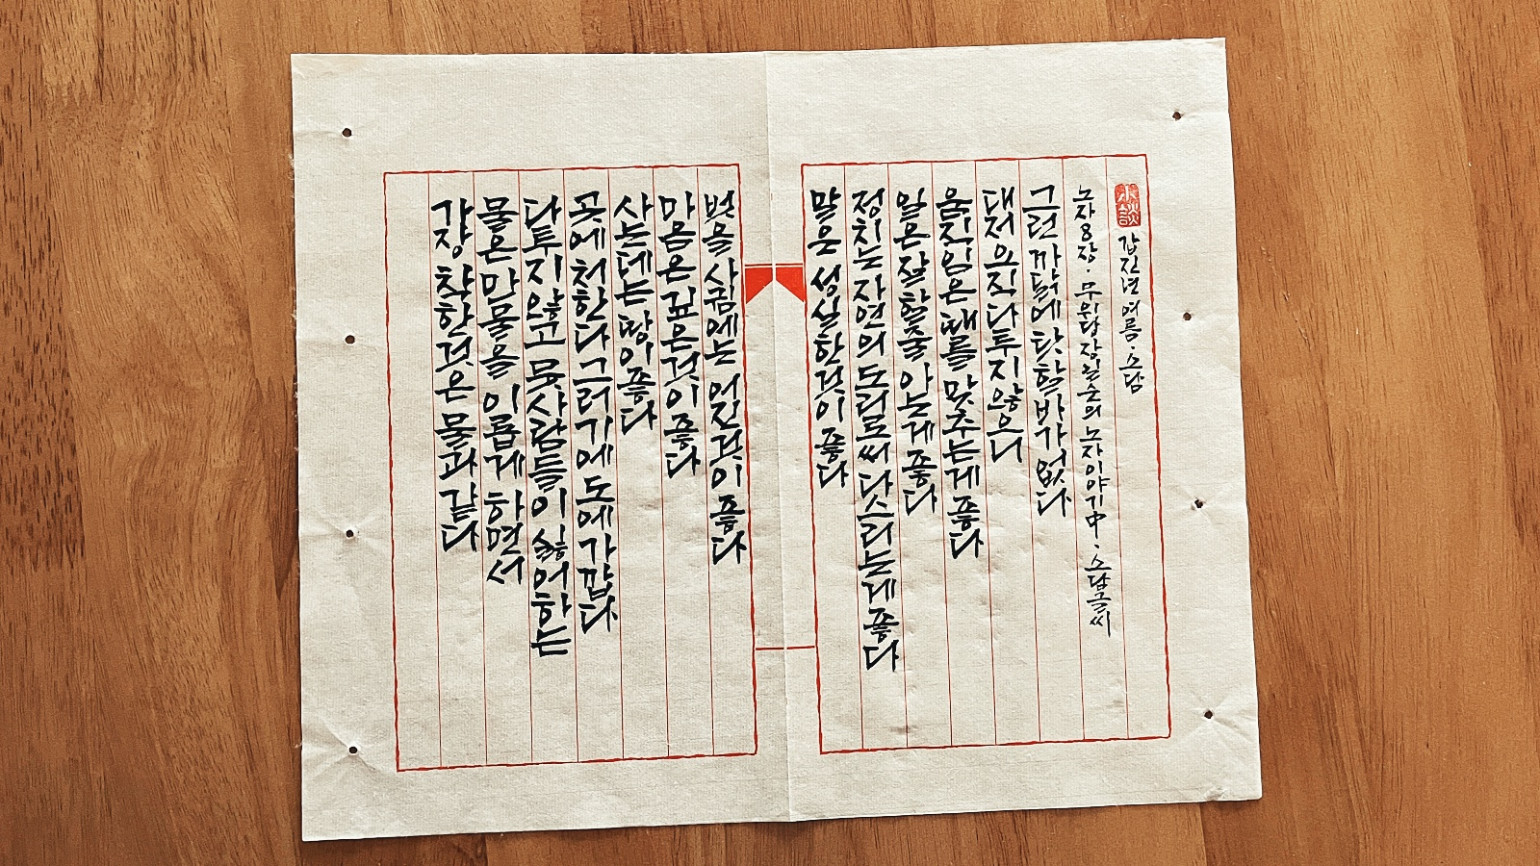 가장 착한것은 물과 같다
물은 만물을 이롭게 하면서
다투지 않고 뭇사람들이 싫어하는
곳에 처한다 그러기에 도에 가깝다
사는데는 땅이 좋다
마음은 깊은것이 좋다
벗을 사귐에는 어진것이 좋다
말은 성실한것이 좋다
정치는 자연의 도리로써 다스리는게 좋다
일은 잘할줄 아는게 좋다
움직임은 때를 맞추는게 좋다
대저 오직 다투지 않으니
그런 까닭에 탓할바가 없다
노자8장·무위당 장일순의 노자이야기中·소담글씨
갑진년 여름·소담